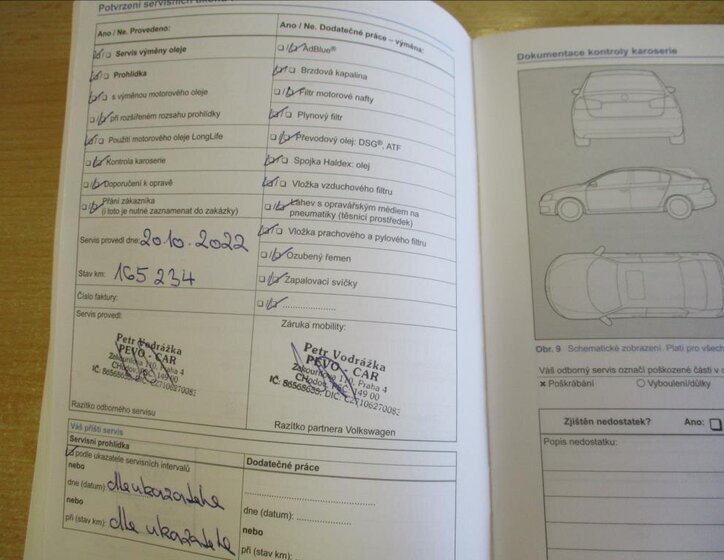 Potvrzení servisních úkonů
Ano / Ne. Provedeno:
Servis výměny oleje
Prohlídka
s výměnou motorového oleje
při rozšířeném rozsahu prohlídky
Použití motorového oleje LongLife
Kontrola karoserie
Doporučení k opravě
Přání zákazníka
(i toto je nutné zaznamenat do zakázky)
Servis provedl dne: 20.10.2022
Stav km: 165 234
Číslo faktury:
Servis provedl:
Petr Vodrážka
PEVO - CAR
Zakouřilova 110, Praha 4
CHodov, PSČ: 149 00
IČ: 86568655, DIČ: CZ7106270083
Razítko odborného servisu
Ano / Ne. Dodatečné práce – výměna:
AdBlue®
Brzdová kapalina
Filtr motorové nafty
Plynový filtr
Převodový olej: DSG®, ATF
Spojka Haldex: olej
Vložka vzduchového filtru
Láhev s opravářským médiem na
pneumatiky (těsnicí prostředek)
Vložka prachového a pylového filtru
Ozubený řemen
Zapalovací svíčky
....................
Záruka mobility:
Petr Vodrážka
PEVO - CAR
Zakouřilova 110, Praha 4
CHodov, PSČ: 149 00
IČ: 86568655, DIČ: CZ7106270083
Razítko partnera Volkswagen
Váš příští servis
Servisní prohlídka
podle ukazatele servisních intervalů
nebo
dne (datum): dle ukazatele
nebo
při (stav km): dle ukazatele
Dodatečné práce
dne (datum):
nebo
při (stav km):
Dokumentace kontroly karoserie
Obr. 9 Schematické zobrazení. Platí pro všech
Váš odborný servis označí poškozené části v
× Poškrábání ○ Vyboulení/důlky
Zjištěn nedostatek? Ano:
Popis nedostatku: